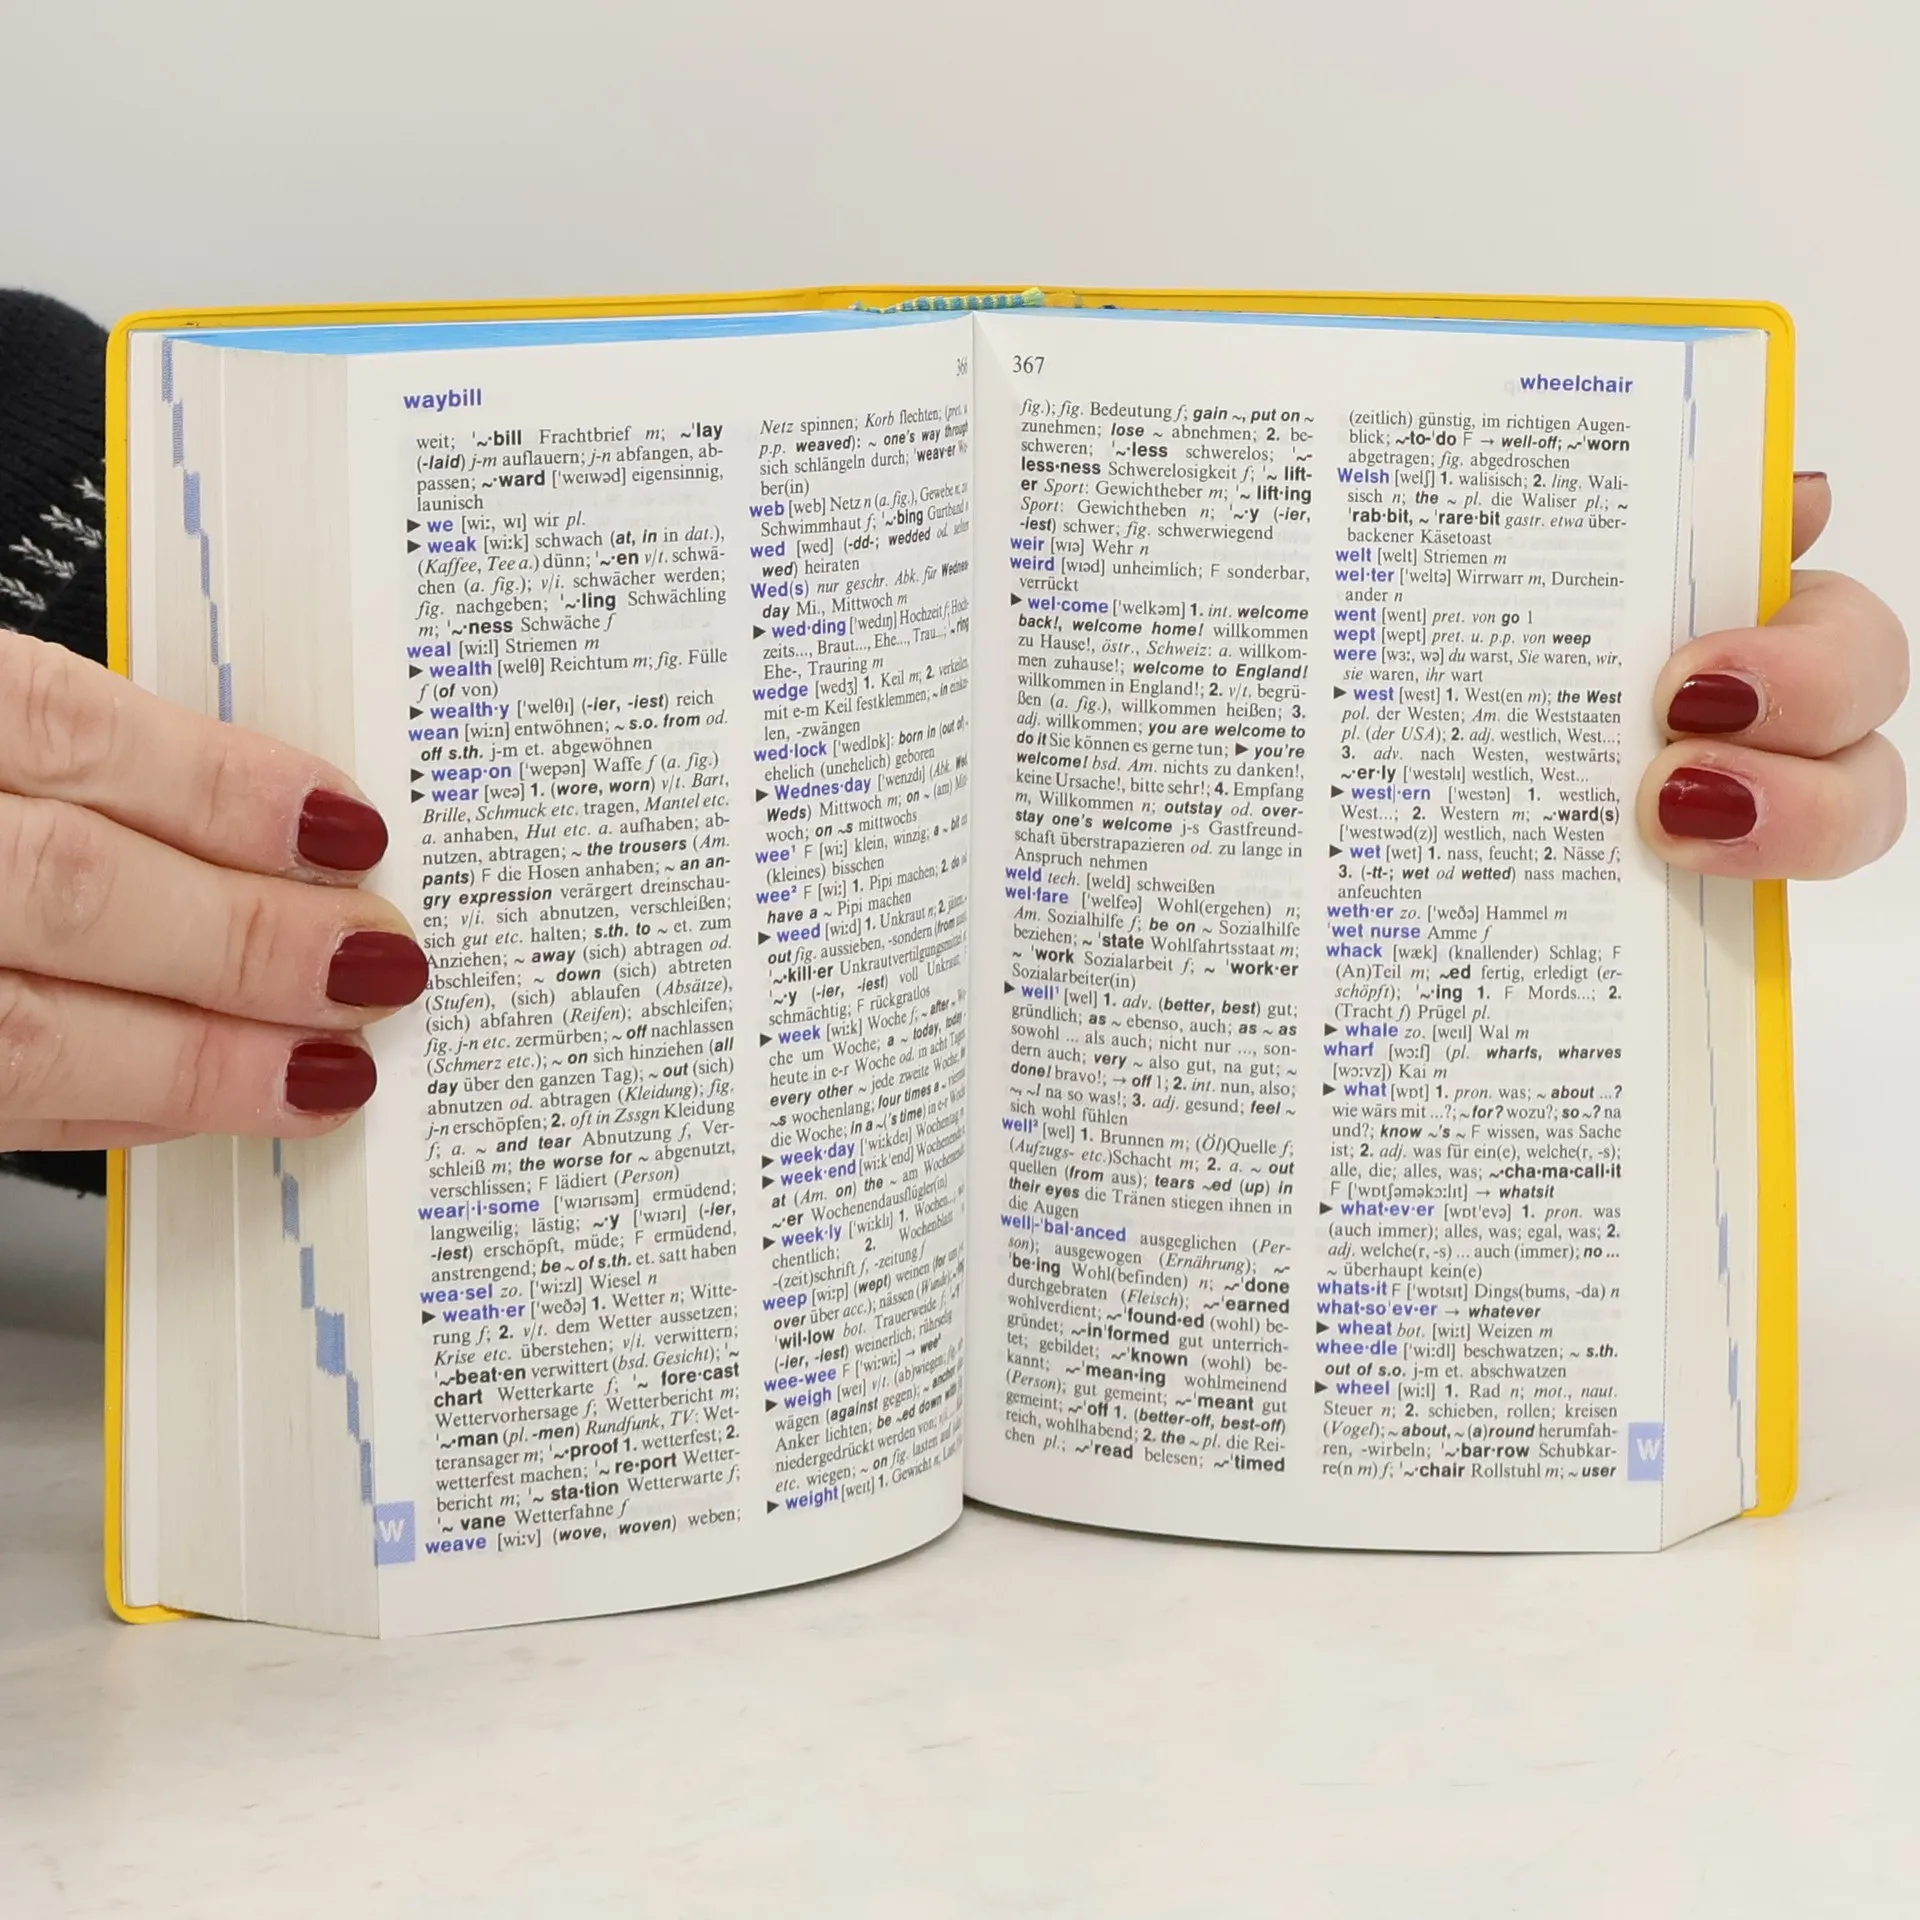 waybill
366
weit; '~·bill Frachtbrief m; ~'lay
(-laid) j-m auflauern; j-n abfangen, ab-
passen; ~·ward ['weɪwəd] eigensinnig,
launisch
▶ we [wiː, wɪ] wir pl.
▶ weak [wiːk] schwach (at, in in dat.),
(Kaffee, Tee a.) dünn; '~·en v/t. schwä-
chen (a. fig.); v/i. schwächer werden;
fig. nachgeben; '~·ling Schwächling
m; '~·ness Schwäche f
weal [wiːl] Striemen m
▶ wealth [welθ] Reichtum m; fig. Fülle
f (of von)
▶ wealth·y ['welθɪ] (-ier, -iest) reich
wean [wiːn] entwöhnen; ~ s.o. from od.
off s.th. j-m et. abgewöhnen
▶ weap·on ['wepən] Waffe f (a. fig.)
▶ wear [weə] 1. (wore, worn) v/t. Bart,
Brille, Schmuck etc. tragen, Mantel etc.
a. anhaben, Hut etc. a. aufhaben; ab-
nutzen, abtragen; ~ the trousers (Am.
pants) F die Hosen anhaben; ~ an an-
gry expression verärgert dreinschau-
en; v/i. sich abnutzen, verschleißen;
sich gut etc. halten; s.th. to ~ et. zum
Anziehen; ~ away (sich) abtragen od.
abschleifen; ~ down (sich) abtreten
(Stufen), (sich) ablaufen (Absätze),
(sich) abfahren (Reifen); abschleifen;
fig. j-n etc. zermürben; ~ off nachlassen
(Schmerz etc.); ~ on sich hinziehen (all
day über den ganzen Tag); ~ out (sich)
abnutzen od. abtragen (Kleidung); fig.
j-n erschöpfen; 2. oft in Zssgn Kleidung
f; a. ~ and tear Abnutzung f, Ver-
schleiß m; the worse for ~ abgenutzt,
verschlissen; F lädiert (Person)
wear|·i·some ['wɪərɪsəm] ermüdend;
langweilig; lästig; ~·y ['wɪərɪ] (-ier,
-iest) erschöpft, müde; F ermüdend,
anstrengend; be ~ of s.th. et. satt haben
wea·sel zo. ['wiːzl] Wiesel n
▶ weath·er ['weðə] 1. Wetter n; Witte-
rung f; 2. v/t. dem Wetter aussetzen;
Krise etc. überstehen; v/i. verwittern;
'~·beat·en verwittert (bsd. Gesicht); '~
chart Wetterkarte f; '~ fore·cast
Wettervorhersage f; Wetterbericht m;
'~·man (pl. -men) Rundfunk, TV: Wet-
teransager m; '~·proof 1. wetterfest; 2.
wetterfest machen; '~ re·port Wetter-
bericht m; '~ sta·tion Wetterwarte f;
'~ vane Wetterfahne f
weave [wiːv] (wove, woven) weben;
W
Netz spinnen; Korb flechten; (pret. u.
p.p. weaved): ~ one's way through
sich schlängeln durch; 'weav·er We-
ber(in)
web [web] Netz n (a. fig.), Gewebe n; zo.
Schwimmhaut f; '~·bing Gurtband n
wed [wed] (-dd-; wedded od. selten
wed) heiraten
Wed(s) nur geschr. Abk. für Wednes-
day Mi., Mittwoch m
▶ wed·ding ['wedɪŋ] Hochzeit f; Hoch-
zeits..., Braut..., Ehe..., Trau...; '~ ring
Ehe-, Trauring m
wedge [wedʒ] 1. Keil m; 2. verkeilen,
mit e-m Keil festklemmen; ~ in einkei-
len, -zwängen
wed·lock ['wedlɒk]: born in (out of) ~
ehelich (unehelich) geboren
▶ Wednes·day ['wenzdɪ] (Abk. Wed,
Weds) Mittwoch m; on ~ (am) Mitt-
woch; on ~s mittwochs
wee¹ F [wiː] klein, winzig; a ~ bit ein
(kleines) bisschen
wee² F [wiː] 1. Pipi machen; 2. do od.
have a ~ Pipi machen
▶ weed [wiːd] 1. Unkraut n; 2. jäten
out fig. aussieben, -sondern (from aus);
'~·kill·er Unkrautvertilgungsmittel
'~·y (-ier, -iest) voll Unkraut; F
schmächtig; F rückgratlos
▶ week [wiːk] Woche f; ~ after ~ Wo-
che um Woche; a ~ today, today
heute in e-r Woche od. in acht Tagen
every other ~ jede zweite Woche;
~s wochenlang; four times a ~ viermal
die Woche; in a ~('s time) in e-r Woche
▶ week·day ['wiːkdeɪ] Wochentag m
▶ week·end [wiːk'end] Wochenende n;
at (Am. on) the ~ am Wochenende
~·er Wochenendausflügler(in)
▶ week·ly ['wiːklɪ] 1. Wochen...,
chentlich; 2. Wochenblatt
-(zeit)schrift f, -zeitung f
weep [wiːp] (wept) weinen (for um
over über acc.); nässen (Wunde);
'wil·low bot. Trauerweide f;
(-ier, -iest) weinerlich; rührselig
wee-wee F ['wiːwiː] → wee²
▶ weigh [weɪ] v/t. (ab)wiegen; fig.
wägen (against gegen); ~ anchor
Anker lichten; be ~ed down with
niedergedrückt werden von;
etc. wiegen; ~ on fig. lasten auf
▶ weight [weɪt] 1. Gewicht n;
367
wheelchair
fig.); fig. Bedeutung f; gain ~, put on ~
zunehmen; lose ~ abnehmen; 2. be-
schweren; '~·less schwerelos; '~·
less·ness Schwerelosigkeit f; '~ lift-
er Sport: Gewichtheber m; '~ lift·ing
Sport: Gewichtheben n; '~·y (-ier,
-iest) schwer; fig. schwerwiegend
weir [wɪə] Wehr n
weird [wɪəd] unheimlich; F sonderbar,
verrückt
▶ wel·come ['welkəm] 1. int. welcome
back!, welcome home! willkommen
zu Hause!, östr., Schweiz: a. willkom-
men zuhause!; welcome to England!
willkommen in England!; 2. v/t. begrü-
ßen (a. fig.), willkommen heißen; 3.
adj. willkommen; you are welcome to
do it Sie können es gerne tun; ▶ you're
welcome! bsd. Am. nichts zu danken!,
keine Ursache!, bitte sehr!; 4. Empfang
m, Willkommen n; outstay od. over-
stay one's welcome j-s Gastfreund-
schaft überstrapazieren od. zu lange in
Anspruch nehmen
weld tech. [weld] schweißen
wel·fare ['welfeə] Wohl(ergehen) n;
Am. Sozialhilfe f; be on ~ Sozialhilfe
beziehen; ~ 'state Wohlfahrtsstaat m;
~ 'work Sozialarbeit f; ~ 'work·er
Sozialarbeiter(in)
▶ well¹ [wel] 1. adv. (better, best) gut;
gründlich; as ~ ebenso, auch; as ~ as
sowohl ... als auch; nicht nur ..., son-
dern auch; very ~ also gut, na gut; ~
done! bravo!; → off 1; 2. int. nun, also;
~, ~! na so was!; 3. adj. gesund; feel ~
sich wohl fühlen
well² [wel] 1. Brunnen m; (Öl)Quelle f;
(Aufzugs- etc.)Schacht m; 2. a. ~ out
quellen (from aus); tears ~ed (up) in
their eyes die Tränen stiegen ihnen in
die Augen
well|-'bal·anced ausgeglichen (Per-
son); ausgewogen (Ernährung); ~-
'be·ing Wohl(befinden) n; ~-'done
durchgebraten (Fleisch); ~-'earned
wohlverdient; ~-'found·ed (wohl) be-
gründet; ~-in'formed gut unterrich-
tet; gebildet; ~-'known (wohl) be-
kannt; ~-'mean·ing wohlmeinend
(Person); gut gemeint; ~-'meant gut
gemeint; ~-'off 1. (better-off, best-off)
reich, wohlhabend; 2. the ~ pl. die Rei-
chen pl.; ~-'read belesen; ~-'timed
(zeitlich) günstig, im richtigen Augen-
blick; ~-to-'do F → well-off; ~-'worn
abgetragen; fig. abgedroschen
Welsh [welʃ] 1. walisisch; 2. ling. Wali-
sisch n; the ~ pl. die Waliser pl.; ~
'rab·bit, ~ 'rare·bit gastr. etwa über-
backener Käsetoast
welt [welt] Striemen m
wel·ter ['weltə] Wirrwarr m, Durchein-
ander n
went [went] pret. von go 1
wept [wept] pret. u. p.p. von weep
were [wɜː, wə] du warst, Sie waren, wir,
sie waren, ihr wart
▶ west [west] 1. West(en m); the West
pol. der Westen; Am. die Weststaaten
pl. (der USA); 2. adj. westlich, West...;
3. adv. nach Westen, westwärts;
~·er·ly ['westəlɪ] westlich, West...
▶ west|·ern ['westən] 1. westlich,
West...; 2. Western m; ~·ward(s)
['westwəd(z)] westlich, nach Westen
▶ wet [wet] 1. nass, feucht; 2. Nässe f;
3. (-tt-; wet od wetted) nass machen,
anfeuchten
weth·er zo. ['weðə] Hammel m
'wet nurse Amme f
whack [wæk] (knallender) Schlag; F
(An)Teil m; ~ed fertig, erledigt (er-
schöpft); '~·ing 1. F Mords...; 2.
(Tracht f) Prügel pl.
▶ whale zo. [weɪl] Wal m
wharf [wɔːf] (pl. wharfs, wharves
[wɔːvz]) Kai m
▶ what [wɒt] 1. pron. was; ~ about ...?
wie wärs mit ...?; ~ for? wozu?; so ~? na
und?; know ~'s ~ F wissen, was Sache
ist; 2. adj. was für ein(e), welche(r, -s);
alle, die; alles, was; ~·cha·ma·call·it
F ['wɒtʃəməkɔːlɪt] → whatsit
▶ what·ev·er [wɒt'evə] 1. pron. was
(auch immer); alles, was; egal, was; 2.
adj. welche(r, -s) ... auch (immer); no ...
~ überhaupt kein(e)
whats·it F ['wɒtsɪt] Dings(bums, -da) n
what·so'ev·er → whatever
▶ wheat bot. [wiːt] Weizen m
whee·dle ['wiːdl] beschwatzen; ~ s.th.
out of s.o. j-m et. abschwatzen
▶ wheel [wiːl] 1. Rad n; mot., naut.
Steuer n; 2. schieben, rollen; kreisen
(Vogel); ~ about, ~ (a)round herumfah-
ren, -wirbeln; '~·bar·row Schubkar-
re(n m) f; '~·chair Rollstuhl m; ~ user
W